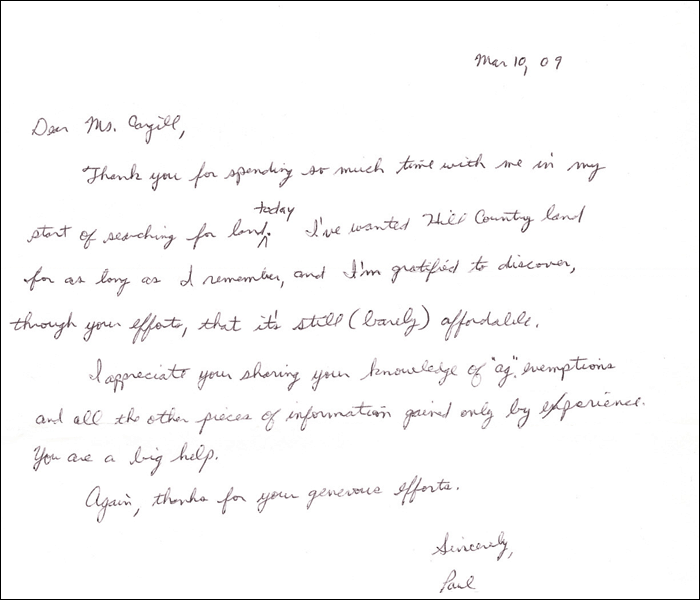 Mar 10, 09
Dear Ms. Cargill,
Thank you for spending so much time with me in my
today
start of searching for land. I've wanted Hill Country land
for as long as I remember, and I'm gratified to discover,
through your efforts, that it's still (barely) affordable.
I appreciate your sharing your knowledge of "ag" exemptions
and all the other pieces of information gained only by experience.
You are a big help.
Again, thanks for your generous efforts.
Sincerely,
Paul